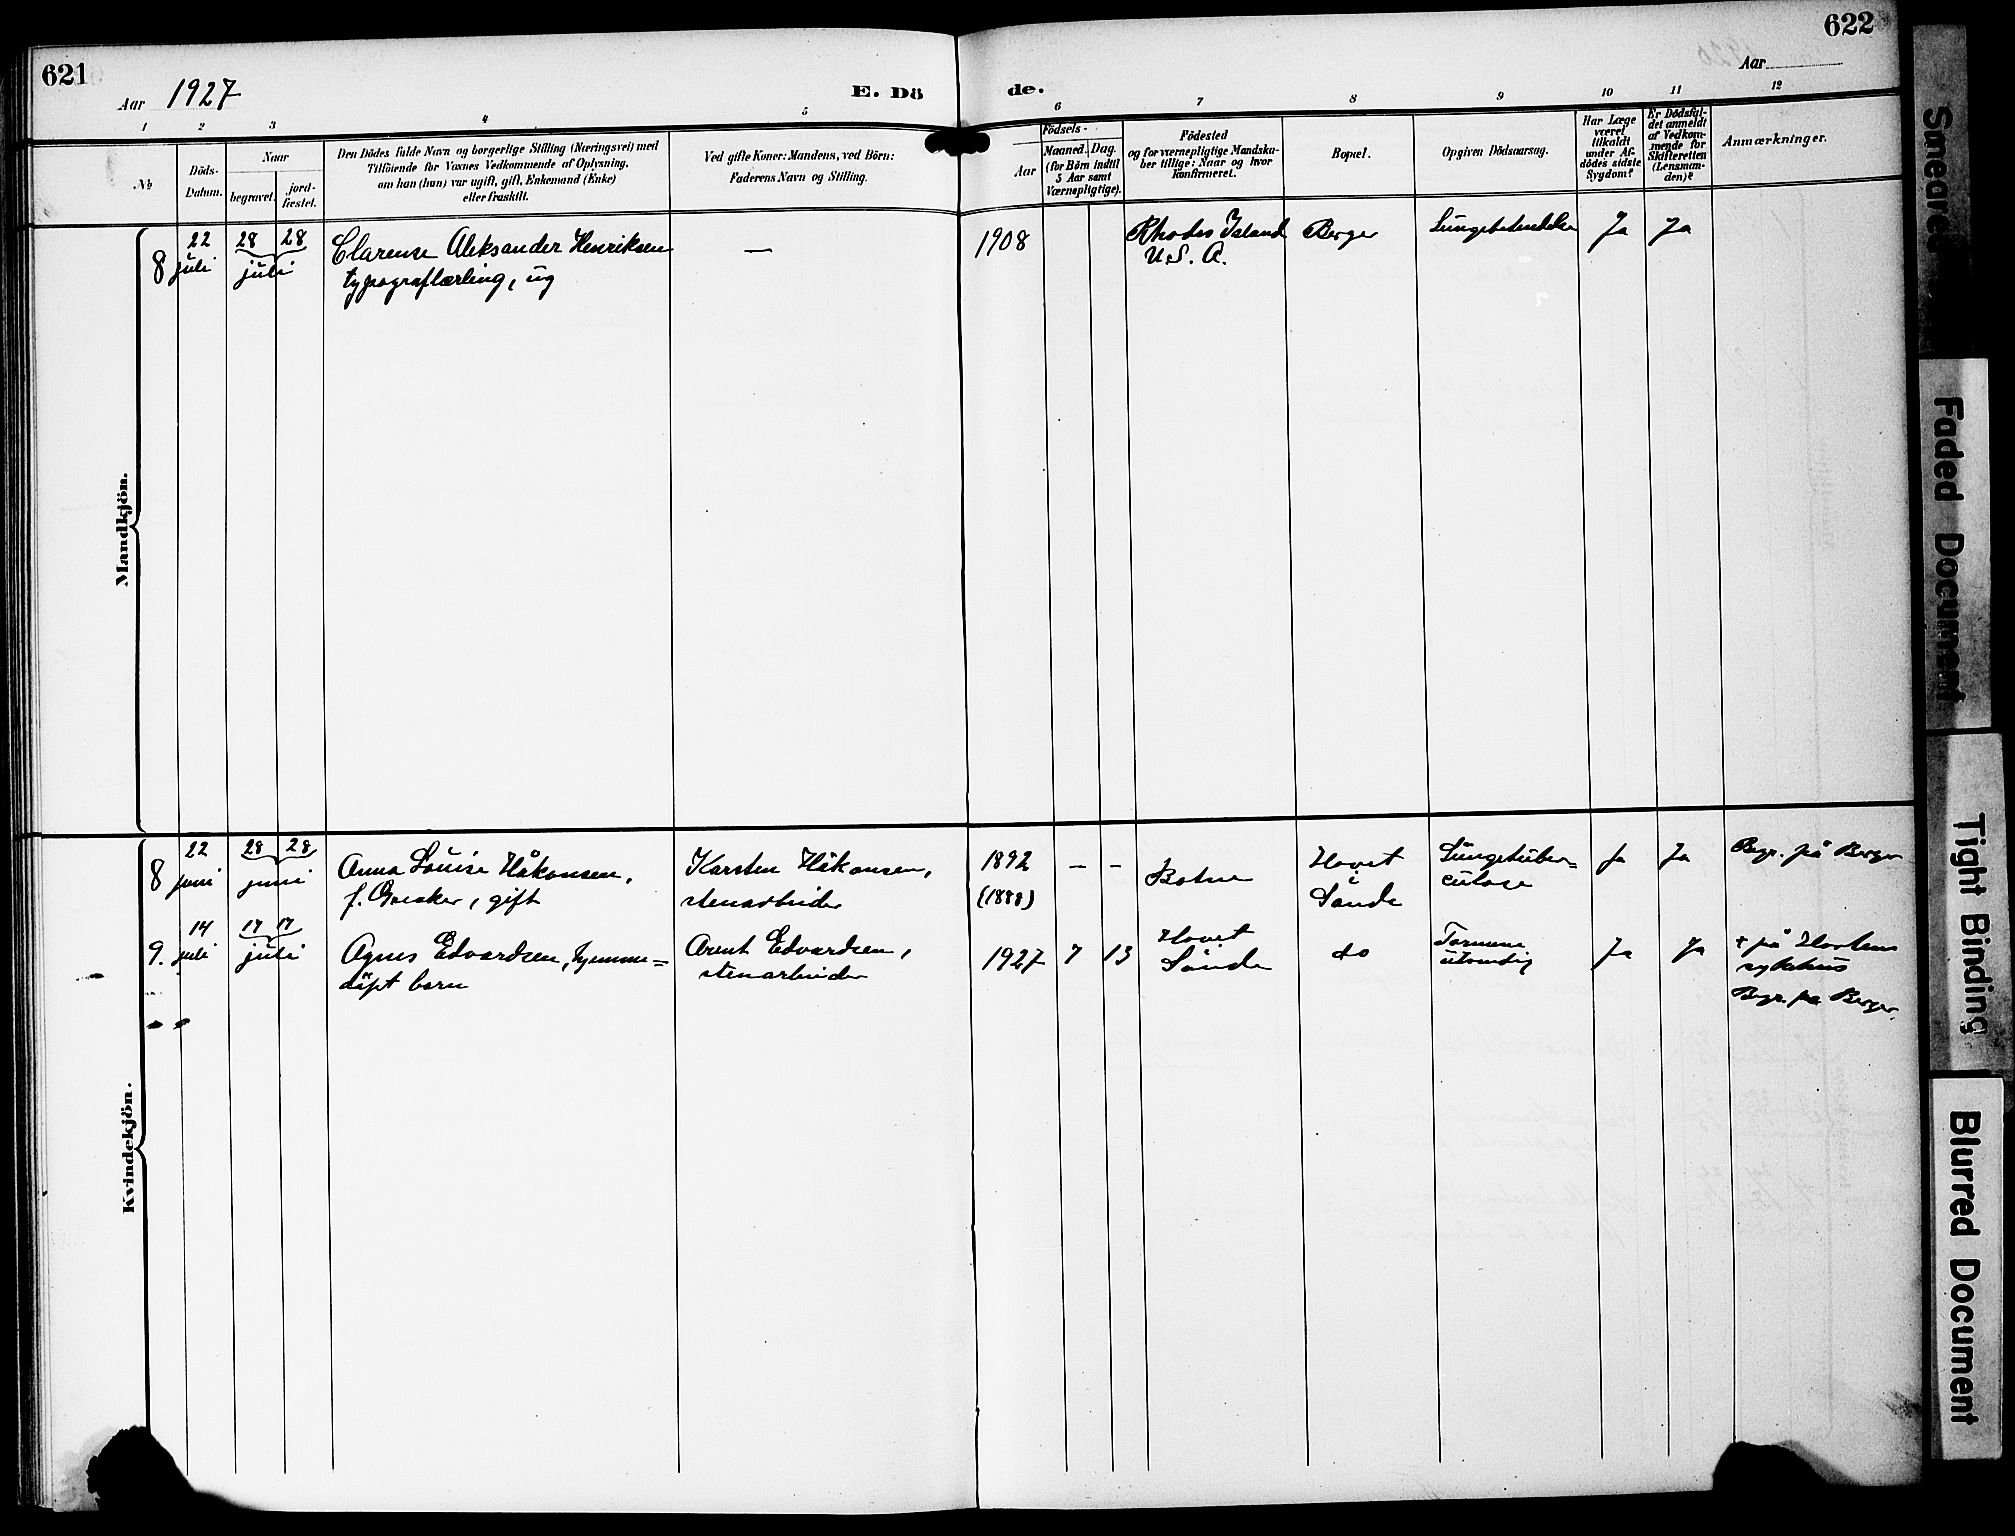 621
622
Aar 1927
E. Dö
de.
Aar
1 2 3 4 5 6 7 8 9 10 11 12
No
Döds-
Datum.
Naar
begravet.
jord-
fæstet.
Den Dödes fulde Navn og borgerlige Stilling (Næringsvei) med
Tilföiende for Voxnes Vedkommende af Oplysning,
om han (hun) var ugift, gift, Enkemand (Enke)
eller fraskilt.
Ved gifte Koner: Mandens, ved Börn:
Faderens Navn og Stilling.
Födsels-
Aar
Maaned.
Dag.
(for Börn indtil
5 Aar samt
Værnepligtige).
Födested
og for værnepligtige Mandska-
ber tillige: Naar og hvor
konfirmeret.
Bopæl.
Opgiven Dödsaarsag.
Har Læge
været
tilkaldt
under Af-
dödes sidste
Sygdom?
Er Dödsfal-
det anmeldt
af Vedkom-
mende for
Skifteretten
(Lensman-
den)?
Anmærkninger.
Mandkjön.
8
22
juli
28 28
juli
Clarense Aleksander Henriksen
typograflærling, ug
—
1908
Rhodes Island
U.S.A.
Berger
Ja
Ja
Kvindekjön.
8
22
juni
28 28
juni
Anna Louise Håkonsen,
gift
Karsten Håkonsen,
stenarbeider
1892
(1888)
- -
Botne
Hovet
Sande
Lungetuber=
culose
Ja
Ja
Begr. på Berger
9.
14
juli
17 17
juli
Agnes Edvardsen, hjemme=
döpt barn
Arent Edvardsen,
stenarbeider
1927 7 13
Hovet
Sande
do
Ja
Ja
+ på Hortens
sykehus
Begr. på Berger.
Smeared
Faded Document
Tight Binding
Blurred Document